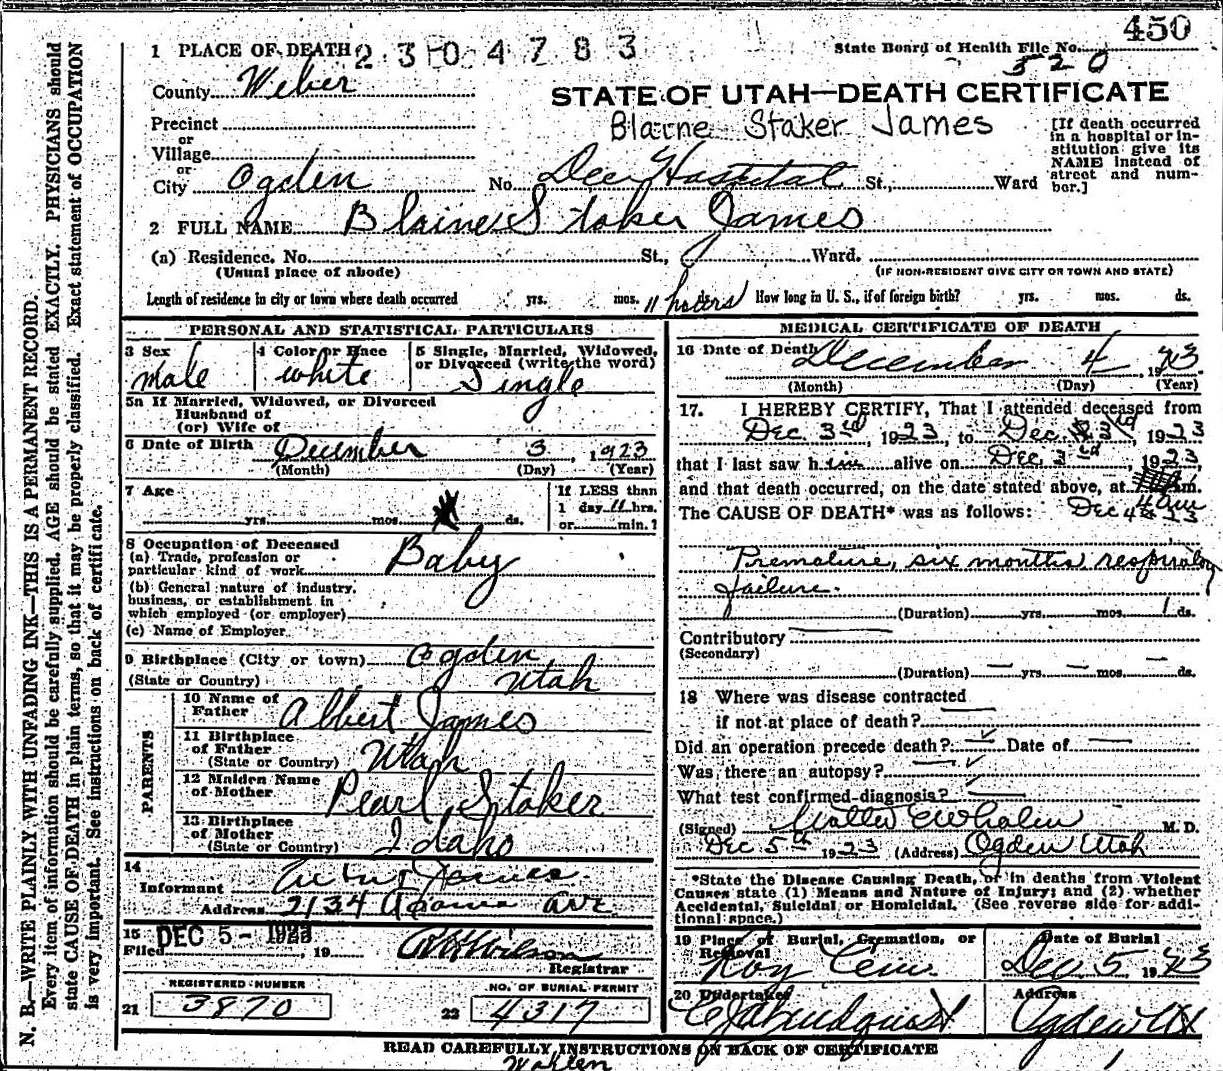 450
1 PLACE OF DEATH 2304783
State Board of Health File No. 520
County Weber
STATE OF UTAH—DEATH CERTIFICATE
Blaine Staker James
Precinct
or
Village
or
City Ogden No. Dee Hospital St., Ward
[If death occurred
in a hospital or in-
stitution give its
NAME instead of
street and num-
ber.]
2 FULL NAME Blaine Staker James
(a) Residence. No. St., Ward.
(Usual place of abode)
(IF NON-RESIDENT GIVE CITY OR TOWN AND STATE)
Length of residence in city or town where death occurred yrs. mos. 11 hours ds. How long in U. S., if of foreign birth? yrs. mos. ds.
PERSONAL AND STATISTICAL PARTICULARS
3 Sex
male
4 Color or Race
white
5 Single, Married, Widowed,
or Divorced (write the word)
Single
5a If Married, Widowed, or Divorced
Husband of
(or) Wife of
6 Date of Birth December 3, 1923
(Month) (Day) (Year)
7 Age
yrs. mos. ds.
If LESS than
1 day 11 hrs.
or min.?
8 Occupation of Deceased
(a) Trade, profession or
particular kind of work Baby
(b) General nature of industry,
business, or establishment in
which employed (or employer)
(c) Name of Employer
9 Birthplace (City or town) Ogden
(State or Country) Utah
PARENTS
10 Name of
Father Albert James
11 Birthplace
of Father
(State or Country) Utah
12 Maiden Name
of Mother Pearl Staker
13 Birthplace
of Mother
(State or Country) Idaho
14
Informant Albert James
Address 2134 Adams Ave
15 DEC 5 - 1923
Filed , 19 Wilson
Registrar
REGISTERED NUMBER
21 3870
NO. OF BURIAL PERMIT
22 4317
MEDICAL CERTIFICATE OF DEATH
16 Date of Death December 4, 1923
(Month) (Day) (Year)
17. I HEREBY CERTIFY, That I attended deceased from
Dec. 3rd, 1923, to Dec. 3rd, 1923
that I last saw him alive on Dec. 3rd, 1923,
and that death occurred, on the date stated above, at m.
The CAUSE OF DEATH* was as follows: Dec 4th 23
Premature, six months respiratory
failure.
(Duration) yrs. mos. 1 ds.
Contributory
(Secondary)
(Duration) yrs. mos. ds.
18 Where was disease contracted
if not at place of death?
Did an operation precede death? Date of
Was there an autopsy?
What test confirmed diagnosis?
(Signed) Walter E Whalen M. D.
Dec 5th 1923 (Address) Ogden Utah
*State the Disease Causing Death, or in deaths from Violent
Causes state (1) Means and Nature of Injury; and (2) whether
Accidental, Suicidal or Homicidal. (See reverse side for addi-
tional space.)
19 Place of Burial, Cremation, or
Removal
Roy Cem.
Date of Burial
Dec 5 1923
20 Undertaker
Lindquist
Address
Ogden Ut
READ CAREFULLY INSTRUCTIONS ON BACK OF CERTIFICATE
N. B.—WRITE PLAINLY WITH UNFADING INK—THIS IS A PERMANENT RECORD.
Every item of information should be carefully supplied. AGE should be stated EXACTLY. PHYSICIANS should
state CAUSE OF DEATH in plain terms, so that it may be properly classified. Exact statement of OCCUPATION
is very important. See instructions on back of certificate.